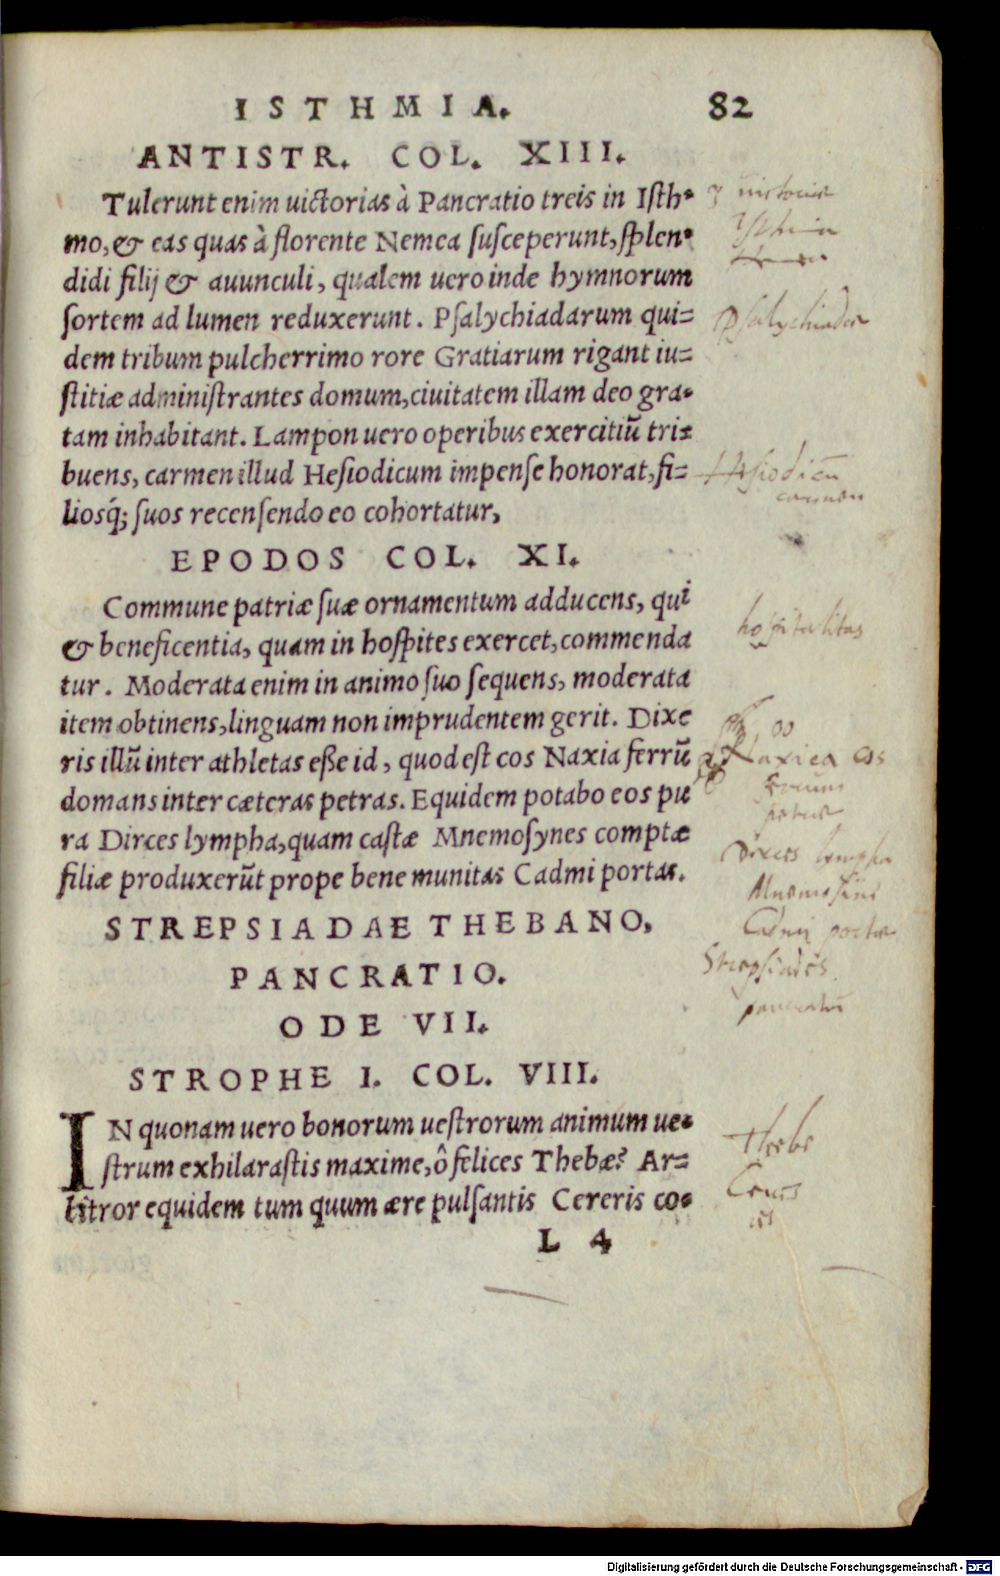 ISTHMIA. 82
ANTISTR. COL. XIII.
Tulerunt enim uictorias à Pancratio treis in Isth-
mo, & eas quas à florente Nemea susceperunt, splen-
didi filij & auunculi, qualem uero inde hymnorum
sortem ad lumen reduxerunt. Psalychiadarum qui-
dem tribum pulcherrimo rore Gratiarum rigant iu-
stitiæ administrantes domum, ciuitatem illam deo gra-
tam inhabitant. Lampon uero operibus exercitiũ tri-
buens, carmen illud Hesiodicum impense honorat, fi-
liosq́; suos recensendo eo cohortatur,
EPODOS COL. XI.
Commune patriæ suæ ornamentum adducens, qui
& beneficentia, quam in hospites exercet, commenda
tur. Moderata enim in animo suo sequens, moderata
item obtinens, linguam non imprudentem gerit. Dixe
ris illũ inter athletas esse id, quod est cos Naxia ferrũ
domans inter cæteras petras. Equidem potabo eos pu
ra Dirces lympha, quam castæ Mnemosynes comptæ
filiæ produxerũt prope bene munitas Cadmi portas.
STREPSIADAE THEBANO,
PANCRATIO.
ODE VII.
STROPHE I. COL. VIII.
IN quonam uero bonorum uestrorum animum ue-
strum exhilarastis maxime, ô felices Thebæ? Ar-
bitror equidem tum quum ære pulsantis Cereris co-
L 4
3 uictoriæ
Isthmia
Psalychiadæ
Hesiodicũ
carmen
hospitalitas
Naxiea cos
ferrum
petræ
Dirces lympha
Mnemosine
Cadmi portæ
Strepsiades
pancratiũ
Thebe
Ceres
Digitalisierung gefördert durch die Deutsche Forschungsgemeinschaft - DFG